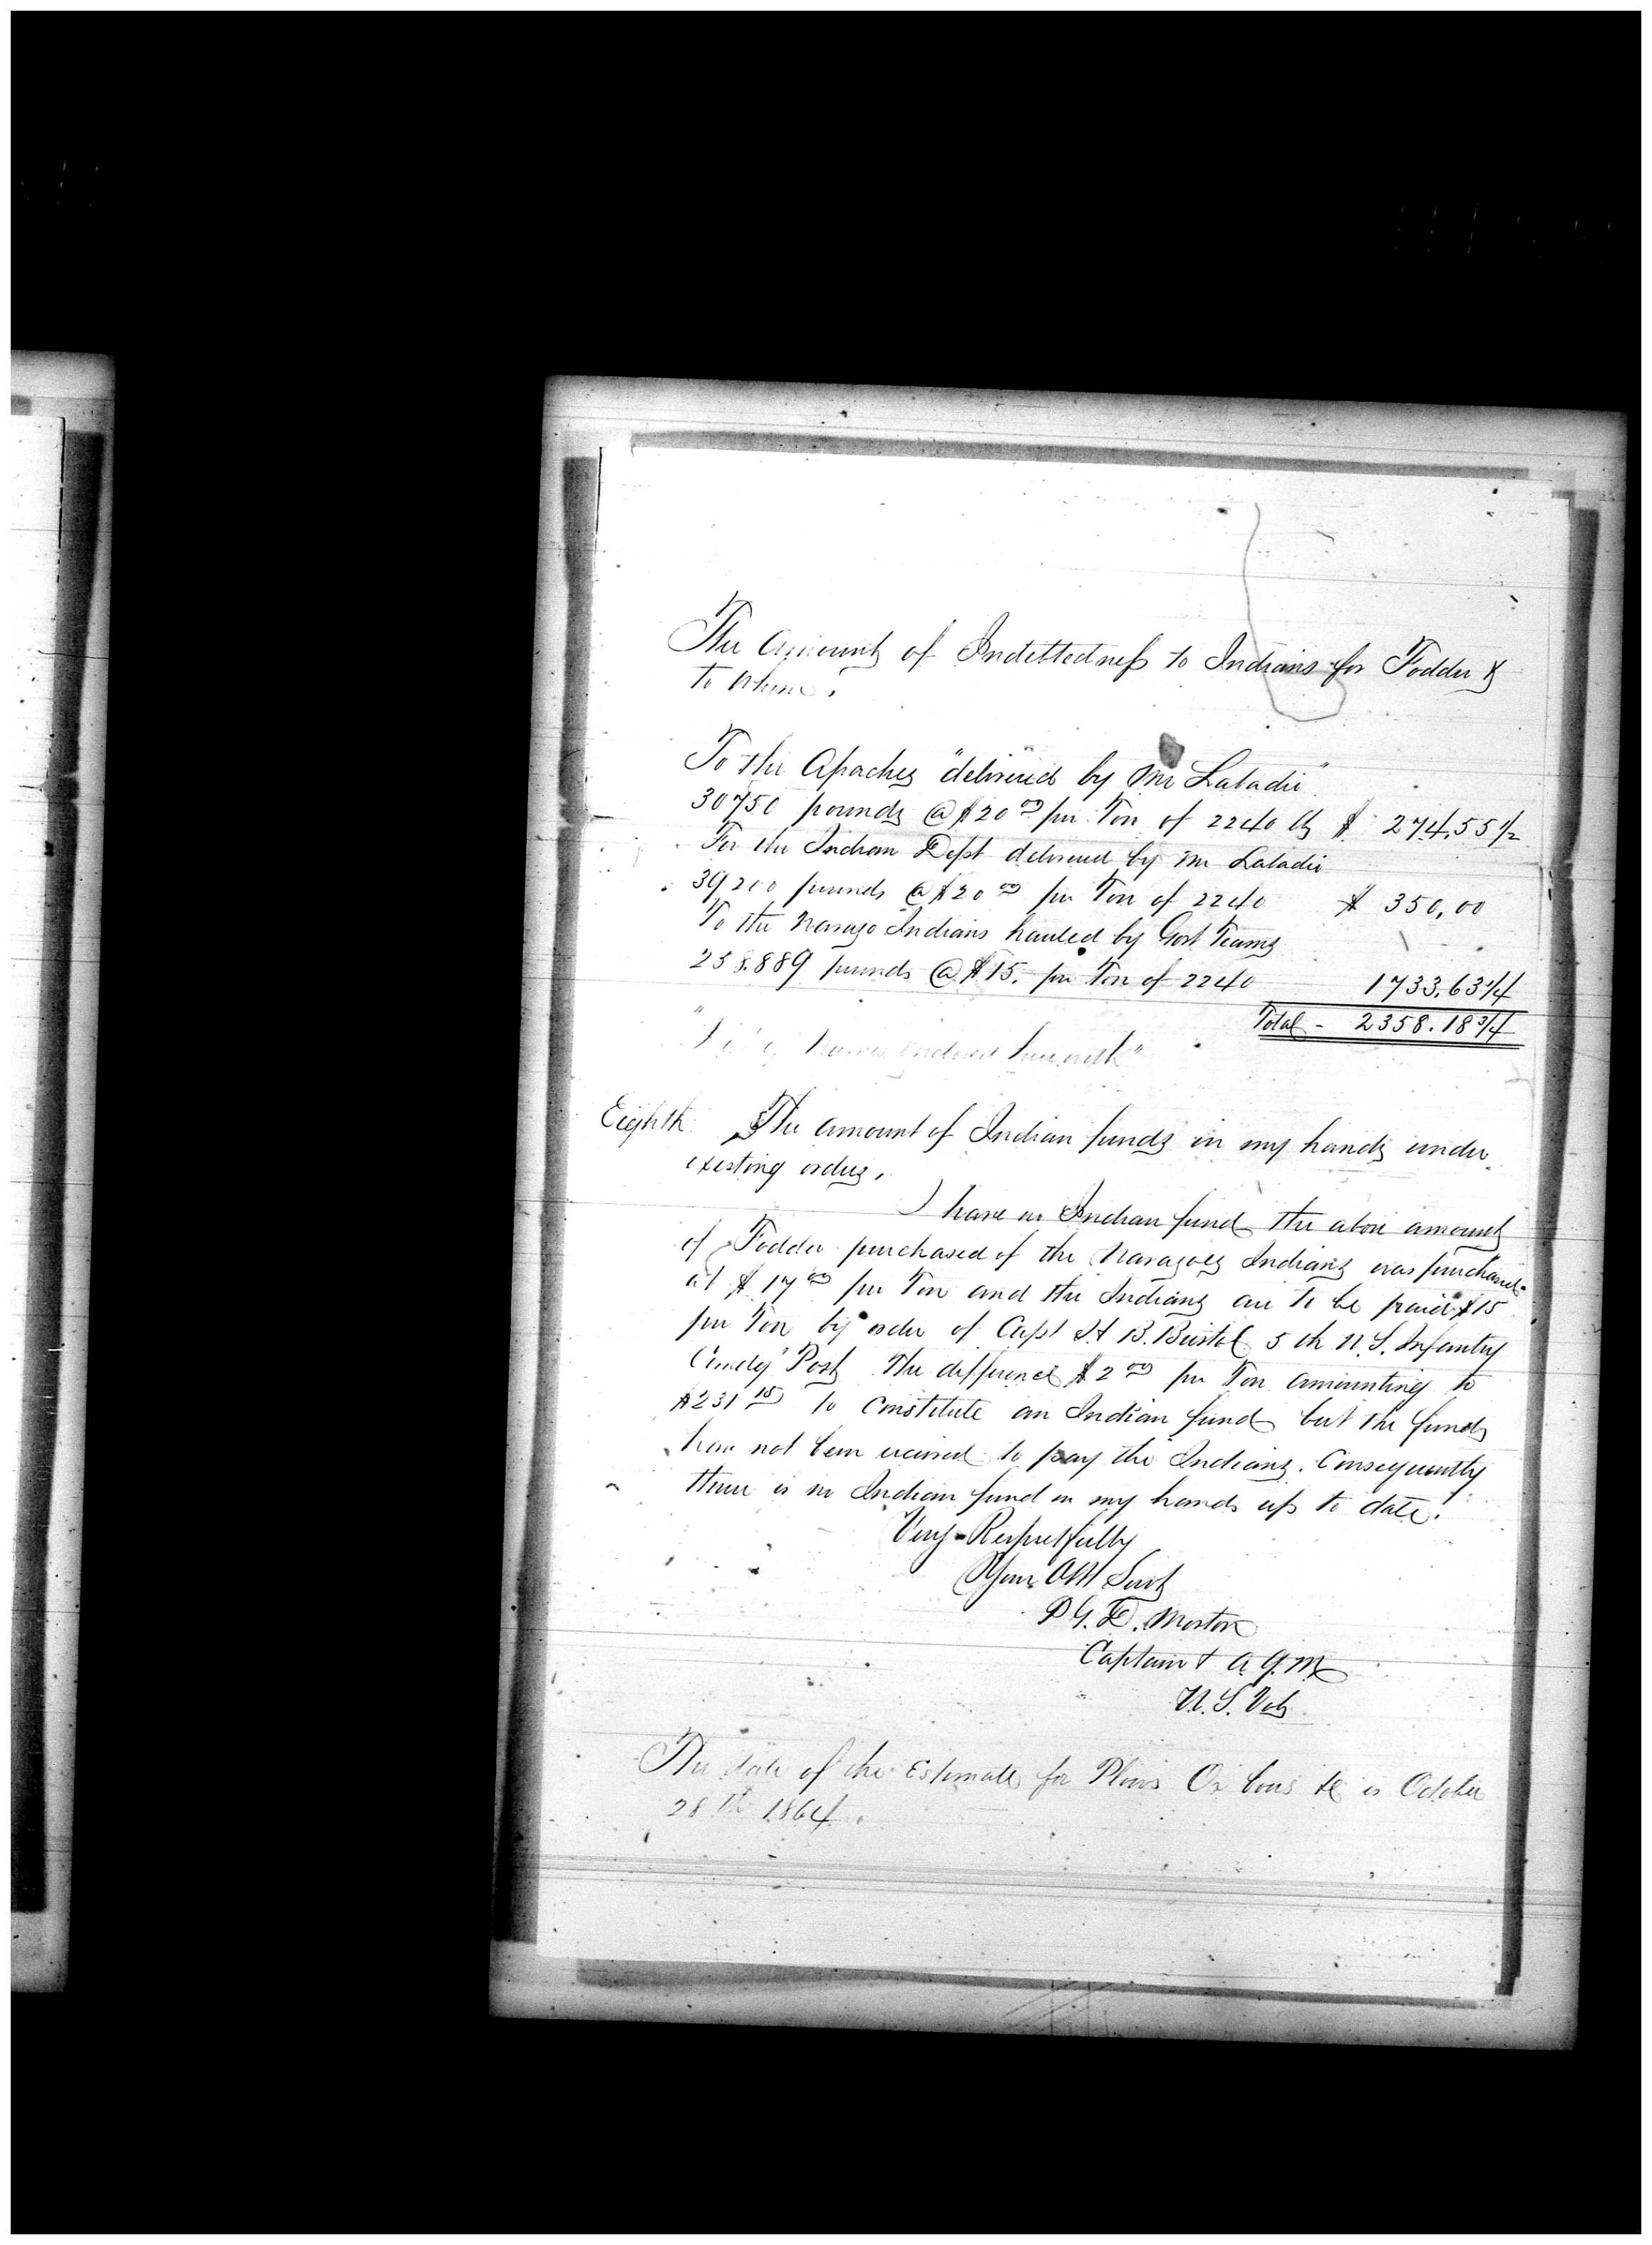 The Amount of Indettedness to Indians for Fodder &
to whom.
To the Apaches "delivered by Mr Labadie"
30750 pounds @ $20 00 per Ton of 2240 lbs $ 274,55 1/2
For the Indian Dept delivered by Mr Labadie
39200 pounds @ $20 00 per Ton of 2240 $ 350,00
To the Navajo Indians hauled by Govt Teams
258.889 pounds @ $15. per Ton of 2240 1733,63 1/4
Total - 2358.18 3/4
" Names enclosed herewith"
Eighth. The amount of Indian funds in my hands under
existing orders,
I have no Indian fund the above amount
of Fodder purchased of the Navajoes Indians was purchased
at $ 17 00 per Ton and the Indians are to be paid $15
per Ton by order of Capt H. B. Bristol 5th U.S. Infantry
Comdg Post The difference $2 00 per Ton amounting to
$231 15 to Constitute an Indian fund but the funds
have not been received to pay the Indians. Consequently
there is no Indian fund in my hands up to date.
Very Respectfully
Your Obt Servt
P G. D. Morton
Captain & A.Q.M.
U.S. Vols
The date of the Estimate for Plows Ox bows &c is October
28th 1864.